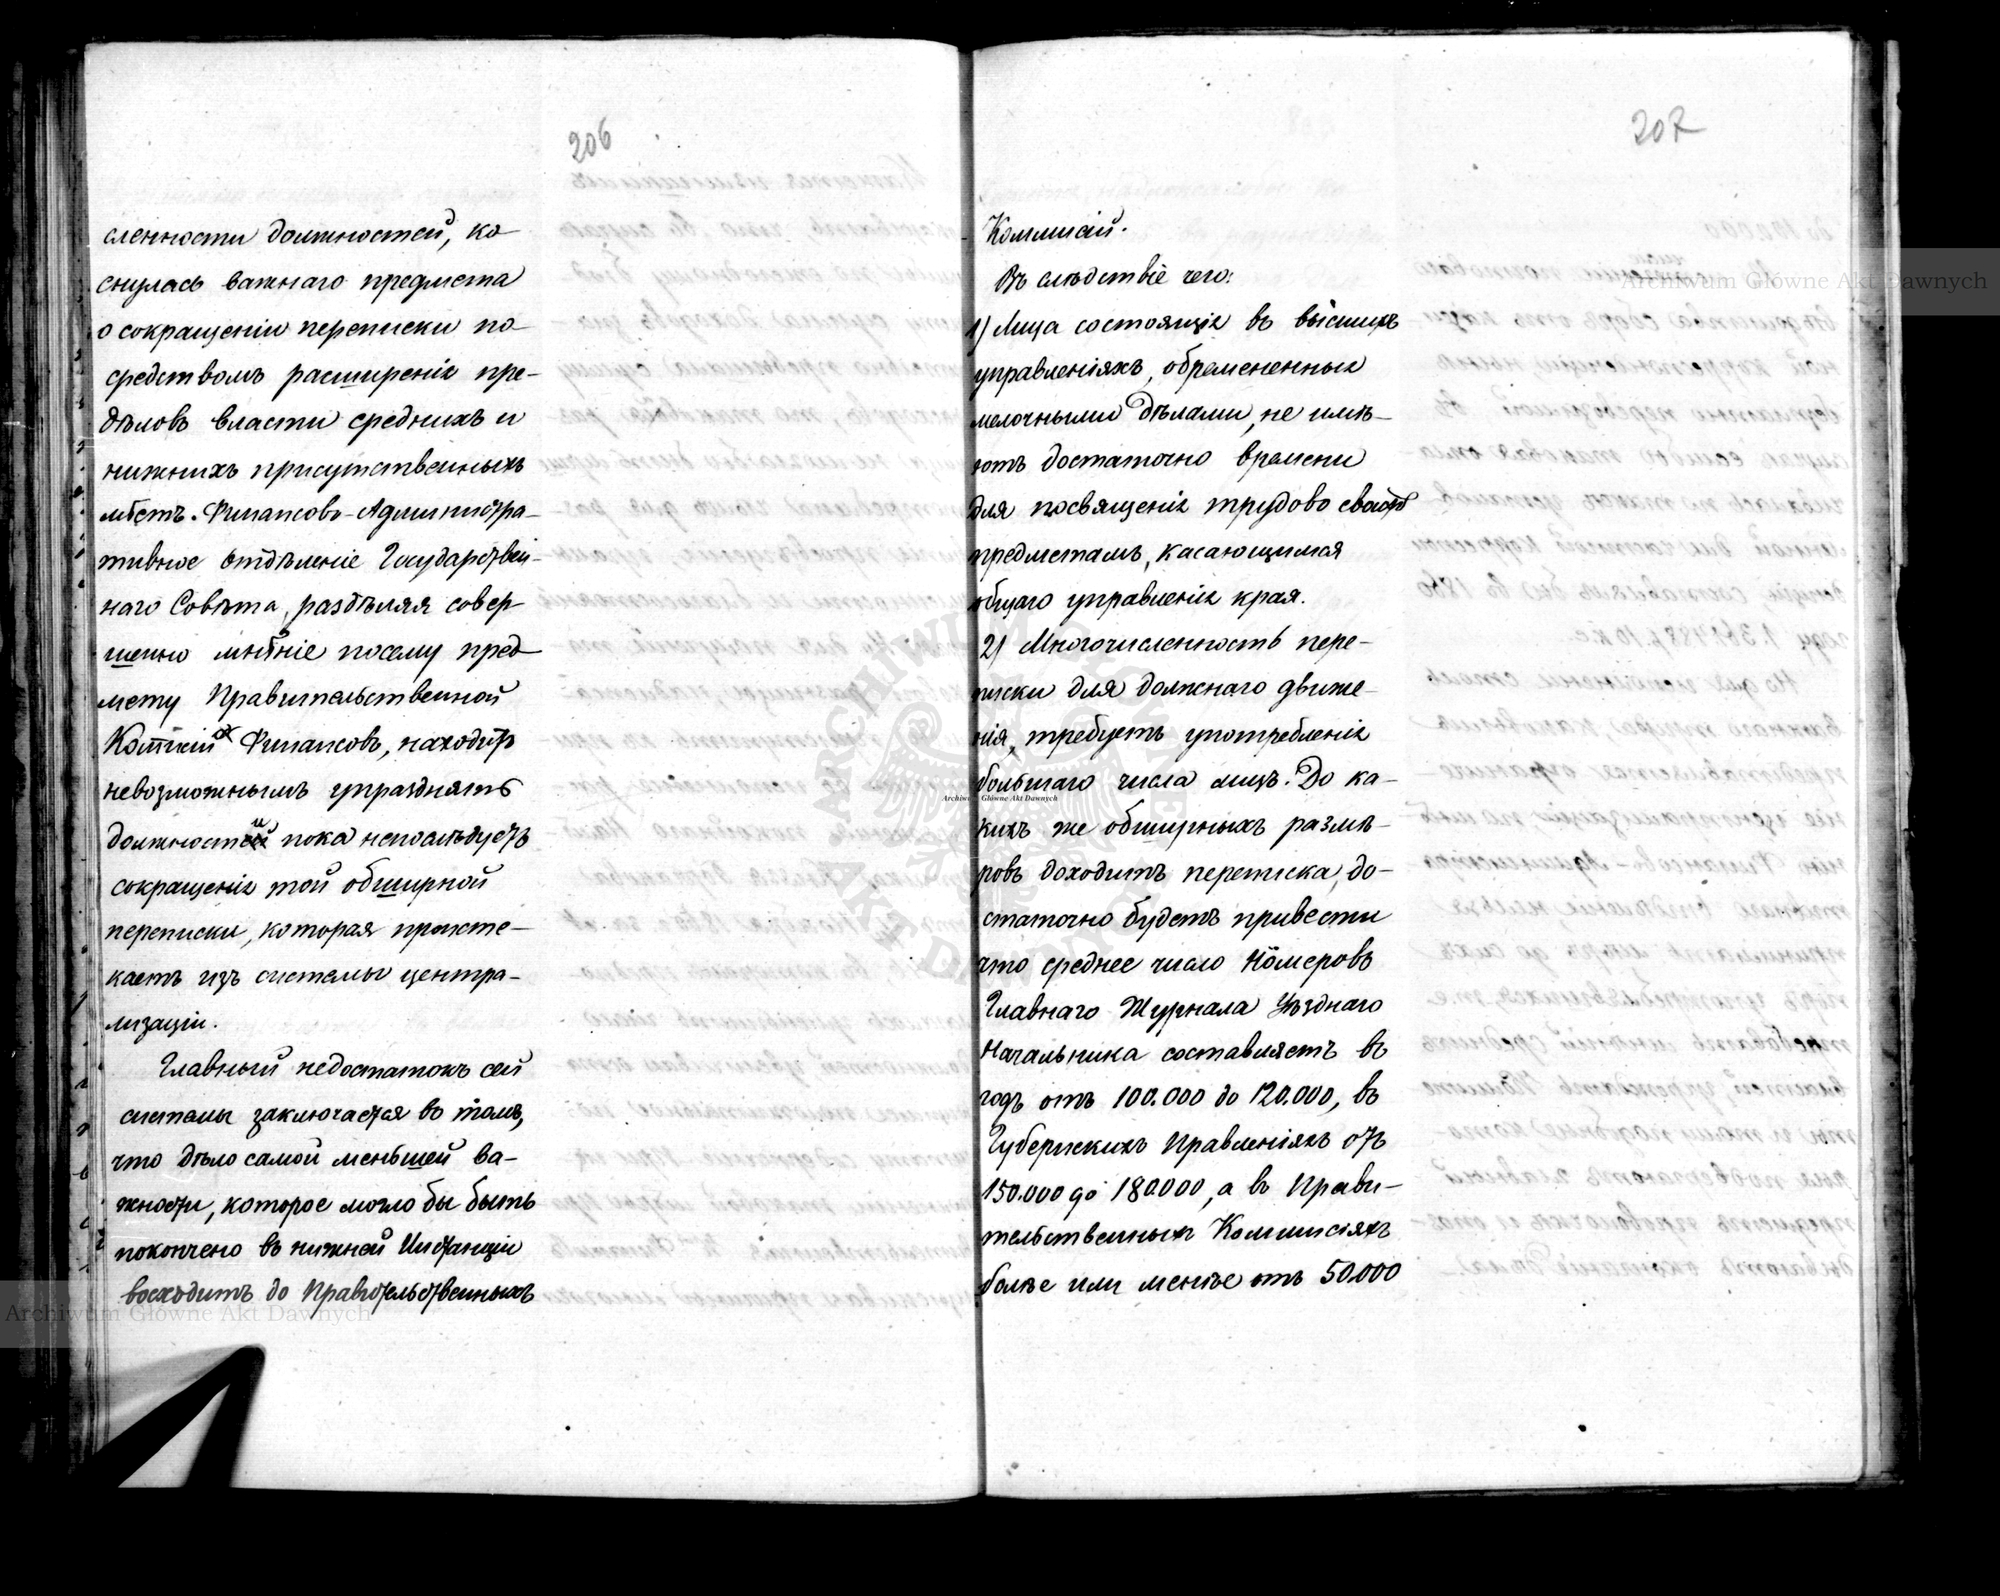 206
сленности должностей, ко-
снулась важнаго предмета
о сокращеніи переписки по-
средствомъ расширенія пре-
дѣловъ власти среднихъ и
нижнихъ присутственныхъ
мѣстъ. Финансово-Администра-
тивное Отдѣленіе Государствен-
наго Совѣта, раздѣляя совер-
шенно мнѣніе посему пред-
мету Правительственной
Финансовъ, находитъ
невозможнымъ упразднять
должности пока непослѣдуетъ
сокращенія той обширной
переписки, которая происте-
каетъ изъ системы центра-
лизаціи.
Главный недостатокъ сей
системы заключается въ томъ,
что дѣло самой меньшей ва-
жности, которое могло бы быть
покончено въ нижней Инстанціи
восходитъ до Правительственныхъ
207
Коммисій.
Въ слѣдствіе чего:
1) Лица состоящія въ высшихъ
управленіяхъ, обремененныя
мелочными дѣлами, не имѣ-
ютъ достаточно времени
для посвященія трудовъ своихъ
предметамъ, касающимся
общаго управленія края.
2) Многочисленность пере-
писки для должнаго движе-
нія, требуетъ употребленія
большаго числа лицъ. До ка-
кихъ же обширныхъ размѣ-
ровъ доходитъ переписка, до-
статочно будетъ привести
что среднее число Номеровъ
Главнаго Журнала Уѣзднаго
Начальника составляетъ въ
годъ отъ 100.000 до 120.000, въ
Губернскихъ Правленіяхъ отъ
150.000 до 180000, а въ Прави-
тельственныхъ Коммисіяхъ
болѣе или менѣе отъ 50.000
Archiwum Główne Akt Dawnych
Archiwum Główne Akt Dawnych
Archiwum Główne Akt Dawnych
ARCHIWUM GŁÓWNE AKT DAWNYCH